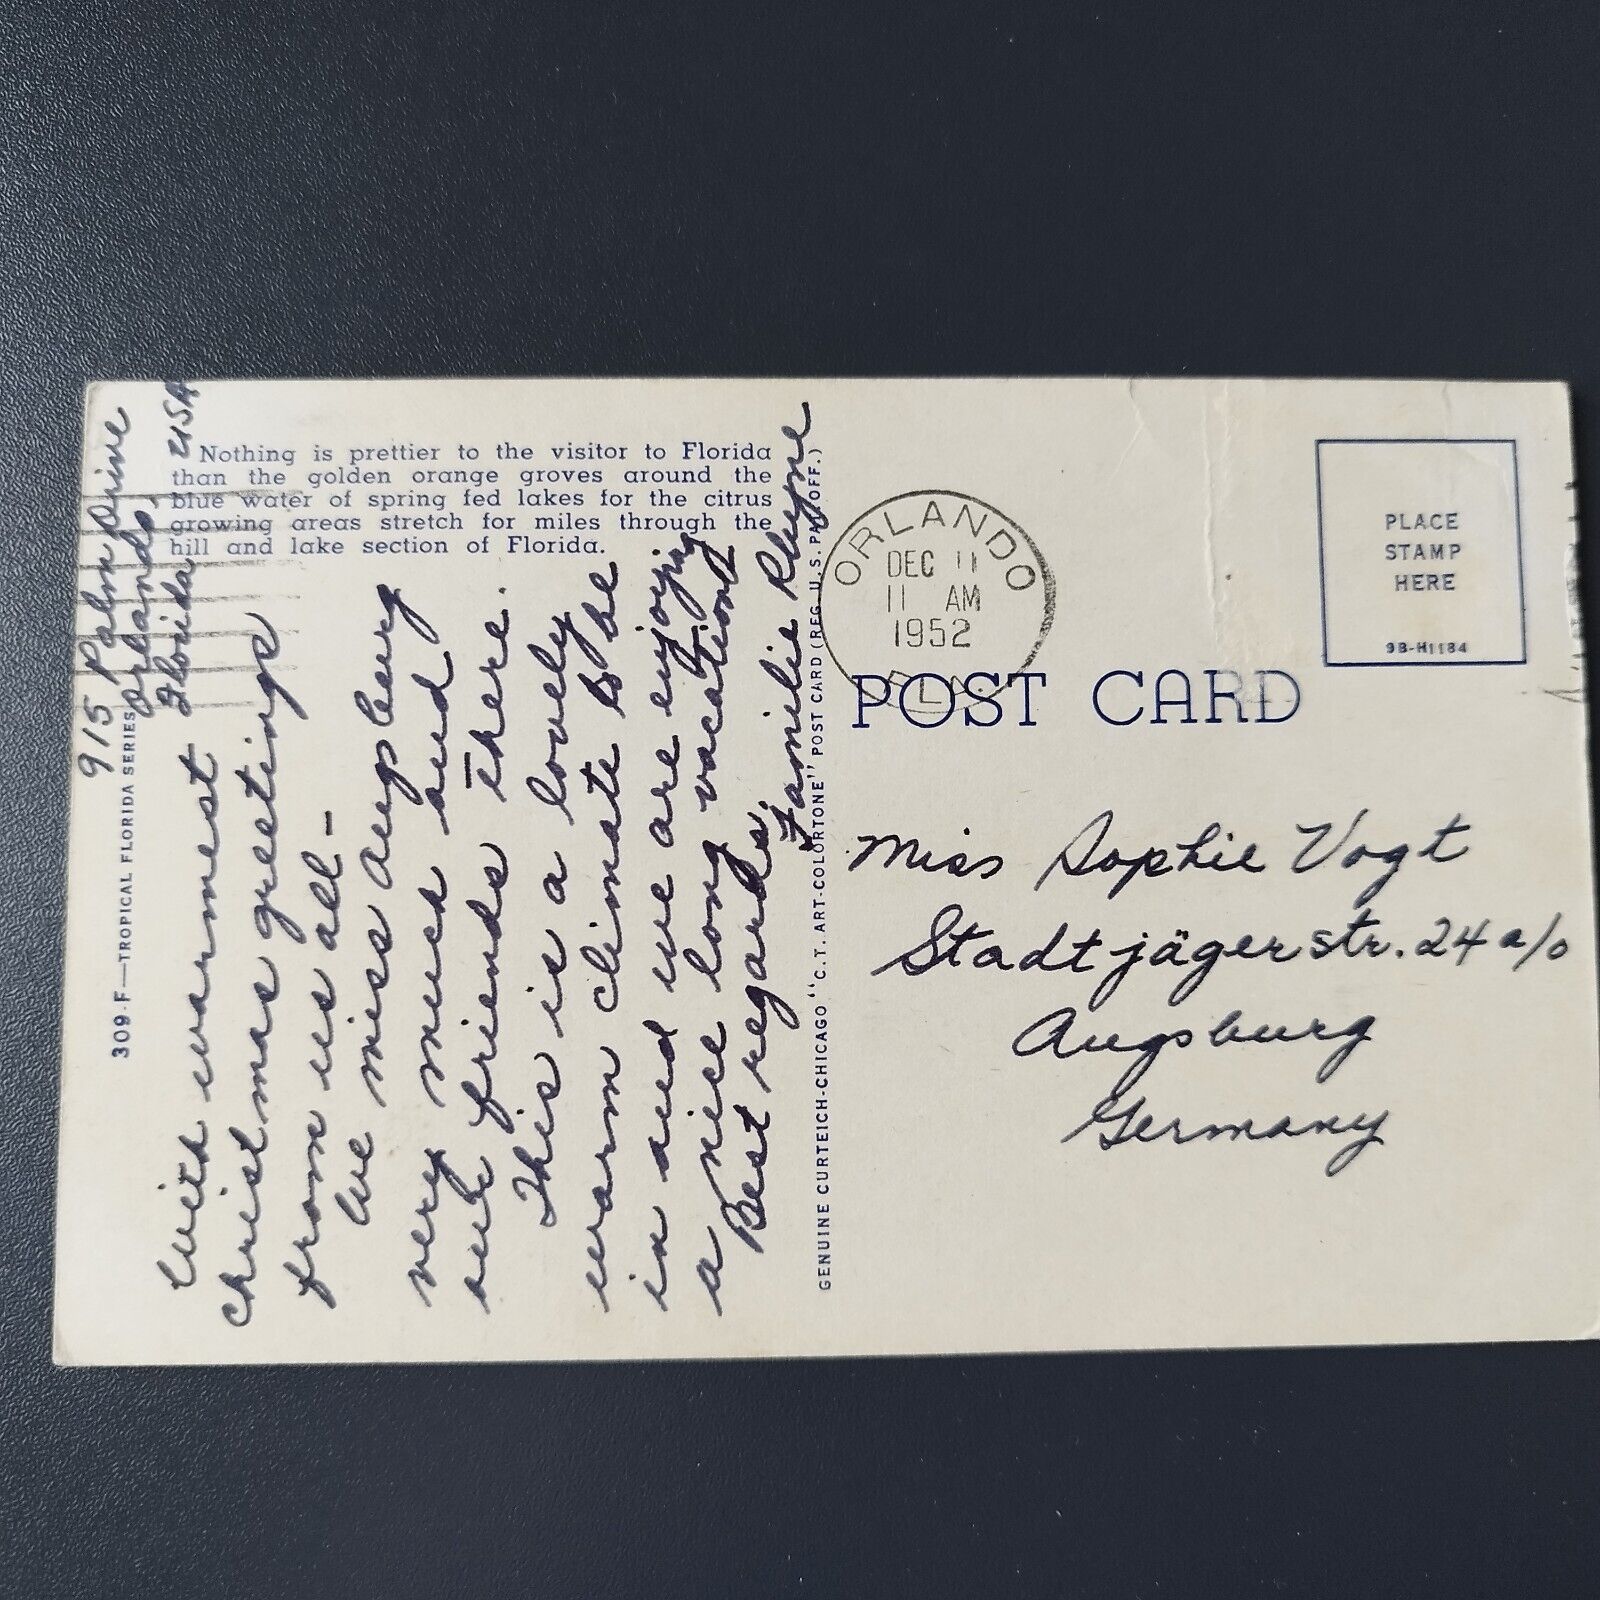 915 Palm Drive
Orlando,
Florida USA
With warmest
Christmas greetings
from us all —
We miss Augsburg
very much and
our friends there.
This is a lovely
warm climate to be
in and we are enjoying
a nice long vacation.
Best regards,
Familie Rhyne
309-F—TROPICAL FLORIDA SERIES
Nothing is prettier to the visitor to Florida
than the golden orange groves around the
blue water of spring fed lakes for the citrus
growing areas stretch for miles through the
hill and lake section of Florida.
GENUINE CURTEICH-CHICAGO "C.T. ART-COLORTONE" POST CARD (REG. U.S. PAT. OFF.)
ORLANDO
DEC 11
11 AM
1952
FLA.
POST CARD
PLACE
STAMP
HERE
9B-H1184
Miss Sophie Vogt
Stadtjägerstr. 24 a/o
Augsburg
Germany